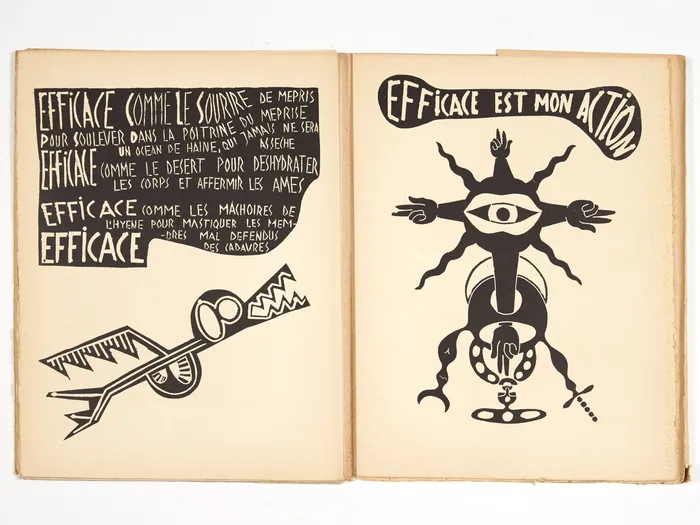 EFFICACE COMME LE SOURIRE DE MEPRIS
POUR SOULEVER DANS LA POITRINE DU MEPRISE
UN OCEAN DE HAINE, QUI JAMAIS NE SERA
ASSECHE
EFFICACE COMME LE DESERT POUR DESHYDRATER
LES CORPS ET AFFERMIR LES AMES
EFFICACE COMME LES MACHOIRES DE
L'HYENE POUR MASTIQUER LES MEM-
-BRES MAL DEFENDUS
EFFICACE DES CADAVRES
EFFICACE EST MON ACTION